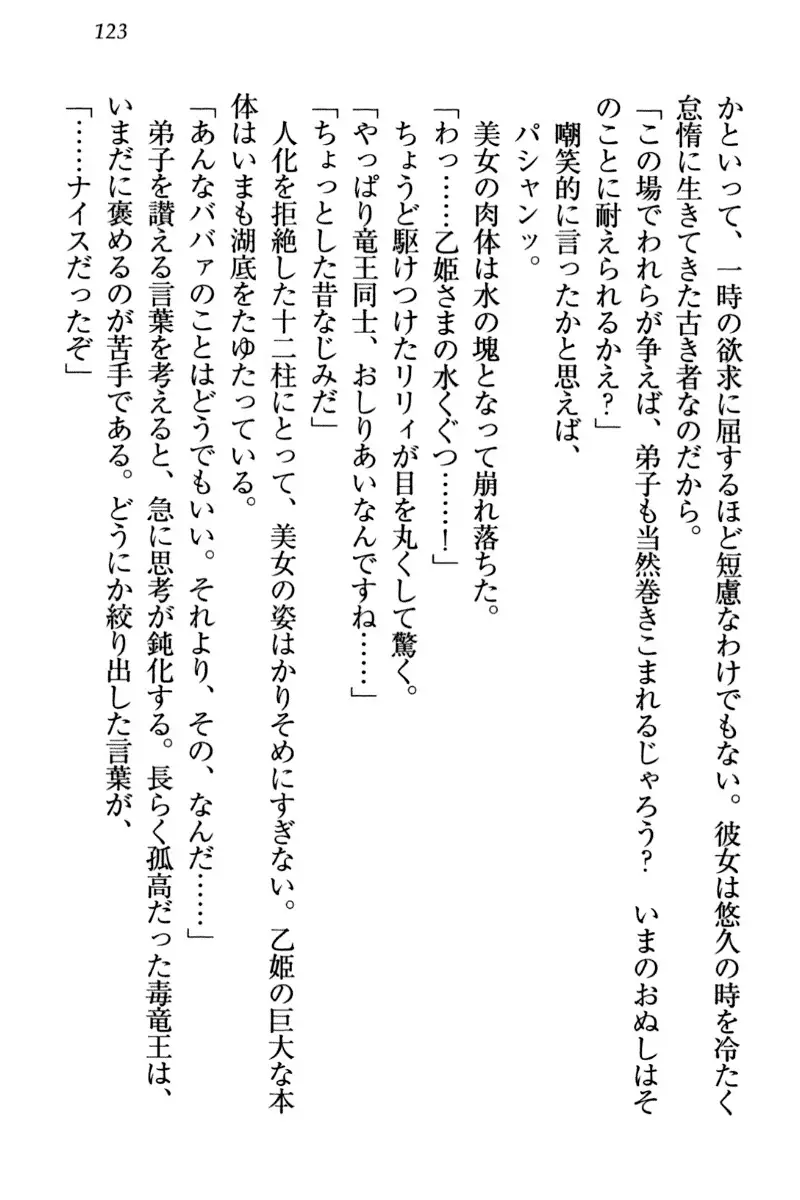 123
かといって、一時の欲求に屈するほど短慮なわけでもない。彼女は悠久の時を冷たく
怠惰に生きてきた古き者なのだから。
「この場でわれらが争えば、弟子も当然巻きこまれるじゃろう？　いまのおぬしはそ
のことに耐えられるかえ？」
嘲笑的に言ったかと思えば、
パシャンッ。
美女の肉体は水の塊となって崩れ落ちた。
「わっ……乙姫さまの水くぐつ……！」
ちょうど駆けつけたリリィが目を丸くして驚く。
「やっぱり竜王同士、おしりあいなんですね……」
「ちょっとした昔なじみだ」
人化を拒絶した十二柱にとって、美女の姿はかりそめにすぎない。乙姫の巨大な本
体はいまも湖底をたゆたっている。
「あんなババァのことはどうでもいい。それより、その、なんだ……」
弟子を讃える言葉を考えると、急に思考が鈍化する。長らく孤高だった毒竜王は、
いまだに褒めるのが苦手である。どうにか絞り出した言葉が、
「……ナイスだったぞ」